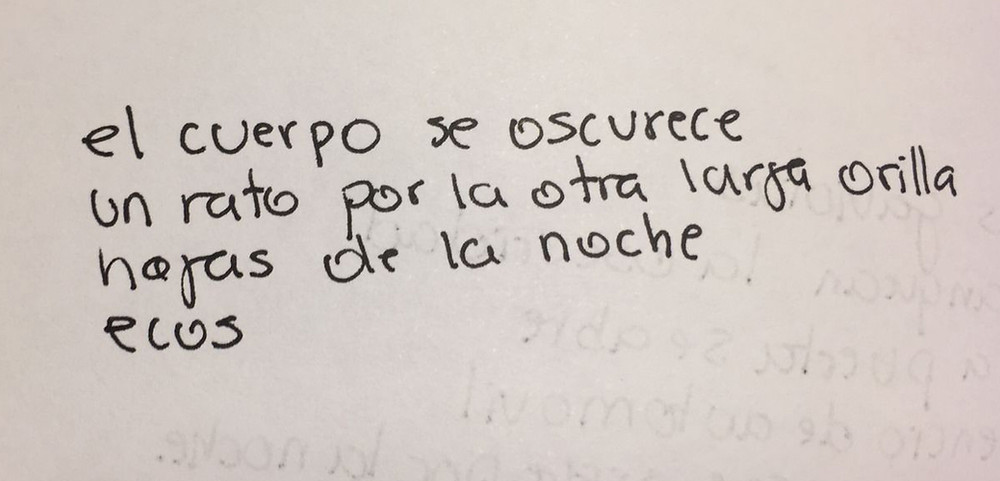 el cuerpo se oscurece
un rato por la otra larga orilla
hojas de la noche
ecos